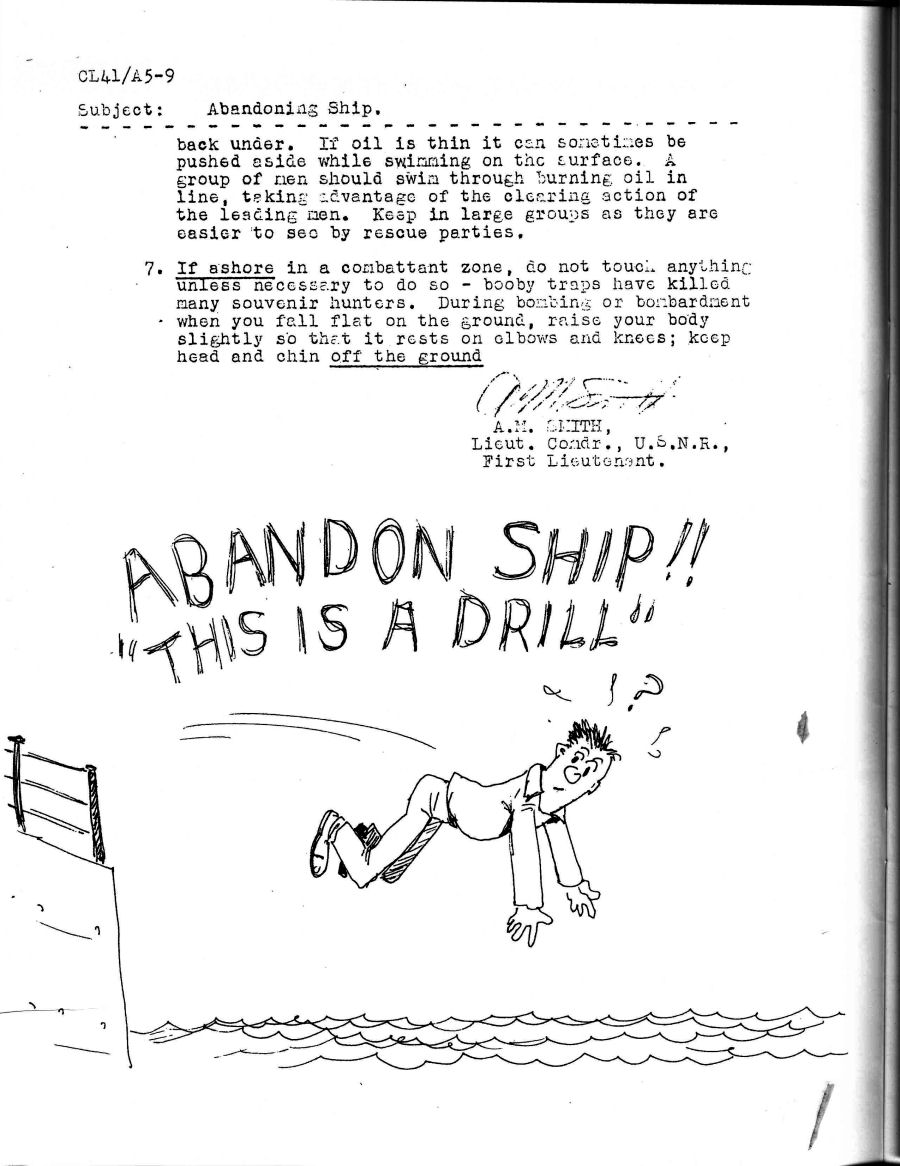 CL41/A5-9
Subject: Abandoning Ship.
back under. If oil is thin it can sometimes be
pushed aside while swimming on the surface. A
group of men should swim through burning oil in
line, taking advantage of the clearing action of
the leading men. Keep in large groups as they are
easier to see by rescue parties.
7. If ashore in a combattant zone, do not touch anything
unless necessary to do so - booby traps have killed
many souvenir hunters. During bombing or bombardment
when you fall flat on the ground, raise your body
slightly so that it rests on elbows and knees; keep
head and chin off the ground
A M Smith
A.M. SMITH,
Lieut. Comdr., U.S.N.R.,
First Lieutenant.
ABANDON SHIP!!
"THIS IS A DRILL"
! ?
!